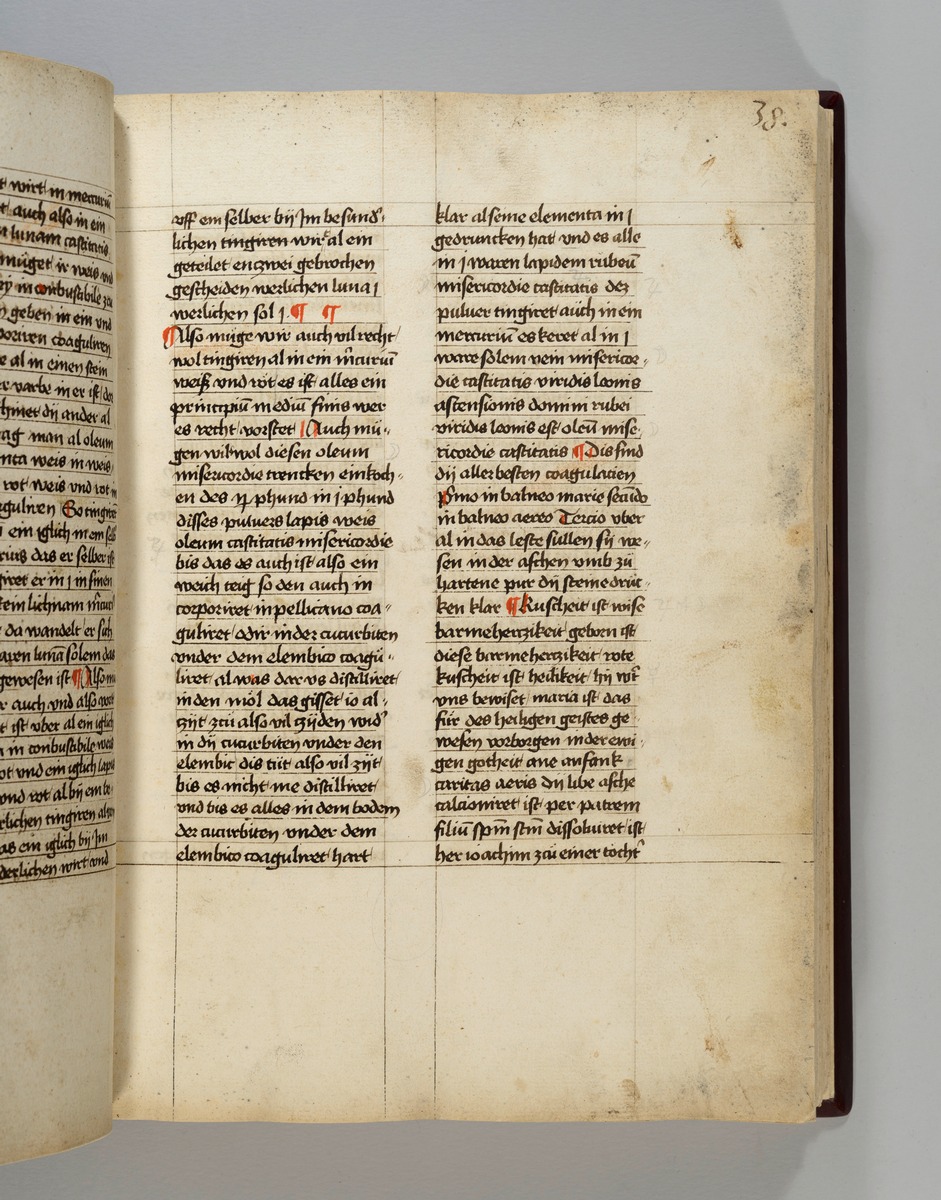 t wirt in mercuriū
t auch also in ein
n lunam castitatis
müget ir weis vnd
in conbustibile zcu
geben in ein vnd
coaguliren
e al in einen stein
varbe in er ist
dÿ ander al
man al oleum
weis in weis
rot weis vnd rot in
So tingirt
ein iglich in em
das er selber ist
er in j in sinen
lichnam
da wandelt er sich
lunā solem das
gewesen ist ¶ Also
auch vnd also
ist vber al ein iglich
in conbustibile weis
vnd ein iglich lapis
vnd rot al bÿ
tingiren also
ein iglich bÿ Jm
wirt vnd
38.
vff em selber bÿ Jm besund'
lichen tingiren wir al ein
geteilet enzwei gebrochen
gescheiden werlichen luna j
werlichen sol j. ¶ ¶
¶ Also müge wir auch vil recht
wol tingiren al in ein m'curiū
weiß vnd rot es ist alles ein
principiū mediū finis wer
es recht vorstet ¶ Auch mü-
gen wil wol diesen oleum
misericordie trencken einkoch-
en des phund in j phund
disses puluers lapis weis
oleum castitatis misericordie
bis das es auch ist also ein
weich teig so den auch in
corporiret in pellicano coa-
guliret odir in der cucurbiten
vnder dem elembico coagu-
liret al was dar vs distilliret
in den mol das gisset io al-
zÿt zcü also vil zÿden wid'
in dÿ cucurbiten vnder den
elembic dis tüt also vil zÿt
bis es nicht me distilliret
vnd bis es alles in dem bodem
der cucurbiten vnder dem
elembico coaguliret hart
klar al seine elementa in j
gedruncken hat vnd es alle
in j waren lapidem rubeū
misericordie castitatis dez
puluer tingiret auch in ein
mercuriū es keret al in j
ware solem vein misericor-
die castitatis viridis leonis
astensionis domini rubei
viridis leonis est oleū mise-
ricordie castitatis ¶ Dis sind
dÿ aller besten coagulacien
p'mo in balneo marie secūdo
in balneo aereo Tercio vber
al in das leste sullen sÿ we-
sen in der aschen vmb zü
hartene pur dÿ steine drüc-
ken klar ¶ Kuscheit ist wise
barmehertzikeit geborn ist
diese barmehertzikeit rote
kuscheit ist heilikeit hÿ wirt
vns bewiset maria ist das
für des heiligen geistes ge-
wesen vorborgen in der ewi-
gen gotheit ane anfank
caritas aeris dÿ libe asche
calcioniret ist per patrem
filiū spm̄ stm̄ dissoluret ist
her ioachim zcü einer tocht'